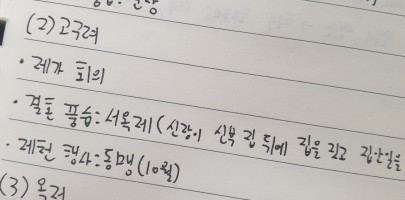 (2) 고구려
· 제가 회의
· 결혼 풍습: 서옥제 (신랑이 신부 집 뒤에 집을 짓고 집안일을
· 제천 행사: 동맹 (10월)
(3) 옥저